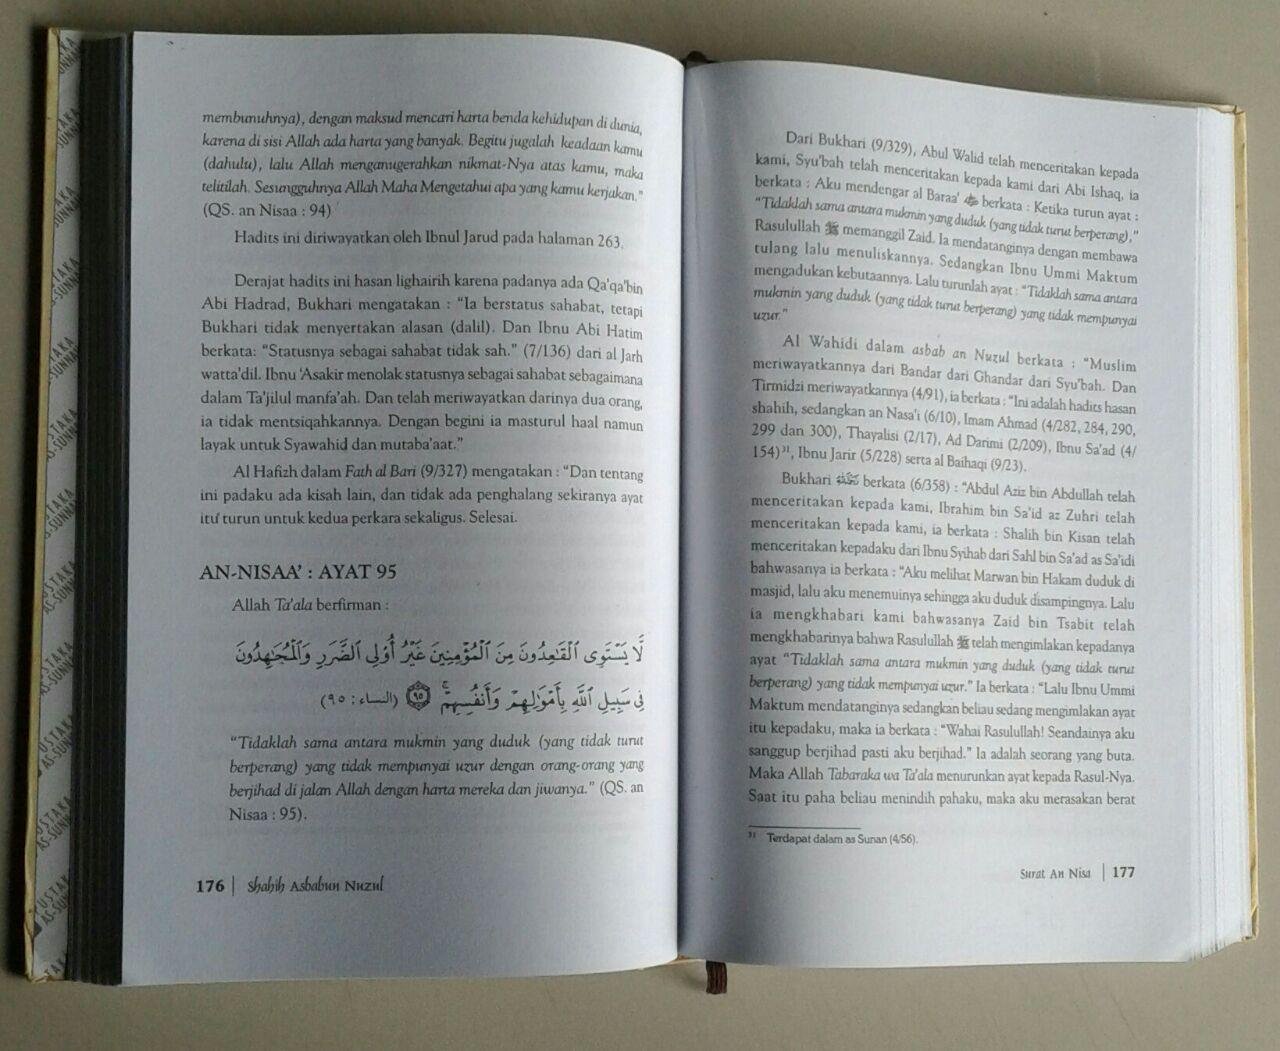 membunuhnya), dengan maksud mencari harta benda kehidupan di dunia,
karena di sisi Allah ada harta yang banyak. Begitu jugalah keadaan kamu
(dahulu), lalu Allah menganugerahkan nikmat-Nya atas kamu, maka
telitilah. Sesungguhnya Allah Maha Mengetahui apa yang kamu kerjakan."
(QS. an Nisaa : 94)
Hadits ini diriwayatkan oleh Ibnul Jarud pada halaman 263.
Derajat hadits ini hasan lighairih karena padanya ada Qa'qa'bin
Abi Hadrad, Bukhari mengatakan : "Ia berstatus sahabat, tetapi
Bukhari tidak menyertakan alasan (dalil). Dan Ibnu Abi Hatim
berkata: "Statusnya sebagai sahabat tidak sah." (7/136) dari al Jarh
watta'dil. Ibnu 'Asakir menolak statusnya sebagai sahabat sebagaimana
dalam Ta'jilul manfa'ah. Dan telah meriwayatkan darinya dua orang,
ia tidak mentsiqahkannya. Dengan begini ia masturul haal namun
layak untuk Syawahid dan mutaba'aat."
Al Hafizh dalam Fath al Bari (9/327) mengatakan : "Dan tentang
ini padaku ada kisah lain, dan tidak ada penghalang sekiranya ayat
itu turun untuk kedua perkara sekaligus. Selesai.
AN-NISAA' : AYAT 95
Allah Ta'ala berfirman :
لَّا يَسْتَوِى ٱلْقَـٰعِدُونَ مِنَ ٱلْمُؤْمِنِينَ غَيْرُ أُو۟لِى ٱلضَّرَرِ وَٱلْمُجَـٰهِدُونَ
فِى سَبِيلِ ٱللَّهِ بِأَمْوَٰلِهِمْ وَأَنفُسِهِمْ ۚ ۝٩٥ (النساء : ٩٥)
"Tidaklah sama antara mukmin yang duduk (yang tidak turut
berperang) yang tidak mempunyai uzur dengan orang-orang yang
berjihad di jalan Allah dengan harta mereka dan jiwanya." (QS. an
Nisaa : 95).
176 | Shahih Asbabun Nuzul
Dari Bukhari (9/329), Abul Walid telah menceritakan kepada
kami, Syu'bah telah menceritakan kepada kami dari Abi Ishaq, ia
berkata : Aku mendengar al Baraa' berkata : Ketika turun ayat :
"Tidaklah sama antara mukmin yang duduk (yang tidak turut berperang),"
Rasulullah ﷺ memanggil Zaid. Ia mendatanginya dengan membawa
tulang lalu menuliskannya. Sedangkan Ibnu Ummi Maktum
mengadukan kebutaannya. Lalu turunlah ayat : "Tidaklah sama antara
mukmin yang duduk (yang tidak turut berperang) yang tidak mempunyai
uzur."
Al Wahidi dalam asbab an Nuzul berkata : "Muslim
meriwayatkannya dari Bandar dari Ghandar dari Syu'bah. Dan
Tirmidzi meriwayatkannya (4/91), ia berkata : "Ini adalah hadits hasan
shahih, sedangkan an Nasa'i (6/10), Imam Ahmad (4/282, 284, 290,
299 dan 300), Thayalisi (2/17), Ad Darimi (2/209), Ibnu Sa'ad (4/
154)³¹, Ibnu Jarir (5/228) serta al Baihaqi (9/23).
Bukhari berkata (6/358) : "Abdul Aziz bin Abdullah telah
menceritakan kepada kami, Ibrahim bin Sa'id az Zuhri telah
menceritakan kepada kami, ia berkata : Shalih bin Kisan telah
menceritakan kepadaku dari Ibnu Syihab dari Sahl bin Sa'ad as Sa'idi
bahwasanya ia berkata : "Aku melihat Marwan bin Hakam duduk di
masjid, lalu aku menemuinya sehingga aku duduk disampingnya. Lalu
ia mengkhabari kami bahwasanya Zaid bin Tsabit telah
mengkhabarinya bahwa Rasulullah ﷺ telah mengimlakan kepadanya
ayat "Tidaklah sama antara mukmin yang duduk (yang tidak turut
berperang) yang tidak mempunyai uzur." Ia berkata : "Lalu Ibnu Ummi
Maktum mendatanginya sedangkan beliau sedang mengimlakan ayat
itu kepadaku, maka ia berkata : "Wahai Rasulullah! Seandainya aku
sanggup berjihad pasti aku berjihad." Ia adalah seorang yang buta.
Maka Allah Tabaraka wa Ta'ala menurunkan ayat kepada Rasul-Nya.
Saat itu paha beliau menindih pahaku, maka aku merasakan berat
³¹ Terdapat dalam as Sunan (4/56).
Surat An Nisa | 177